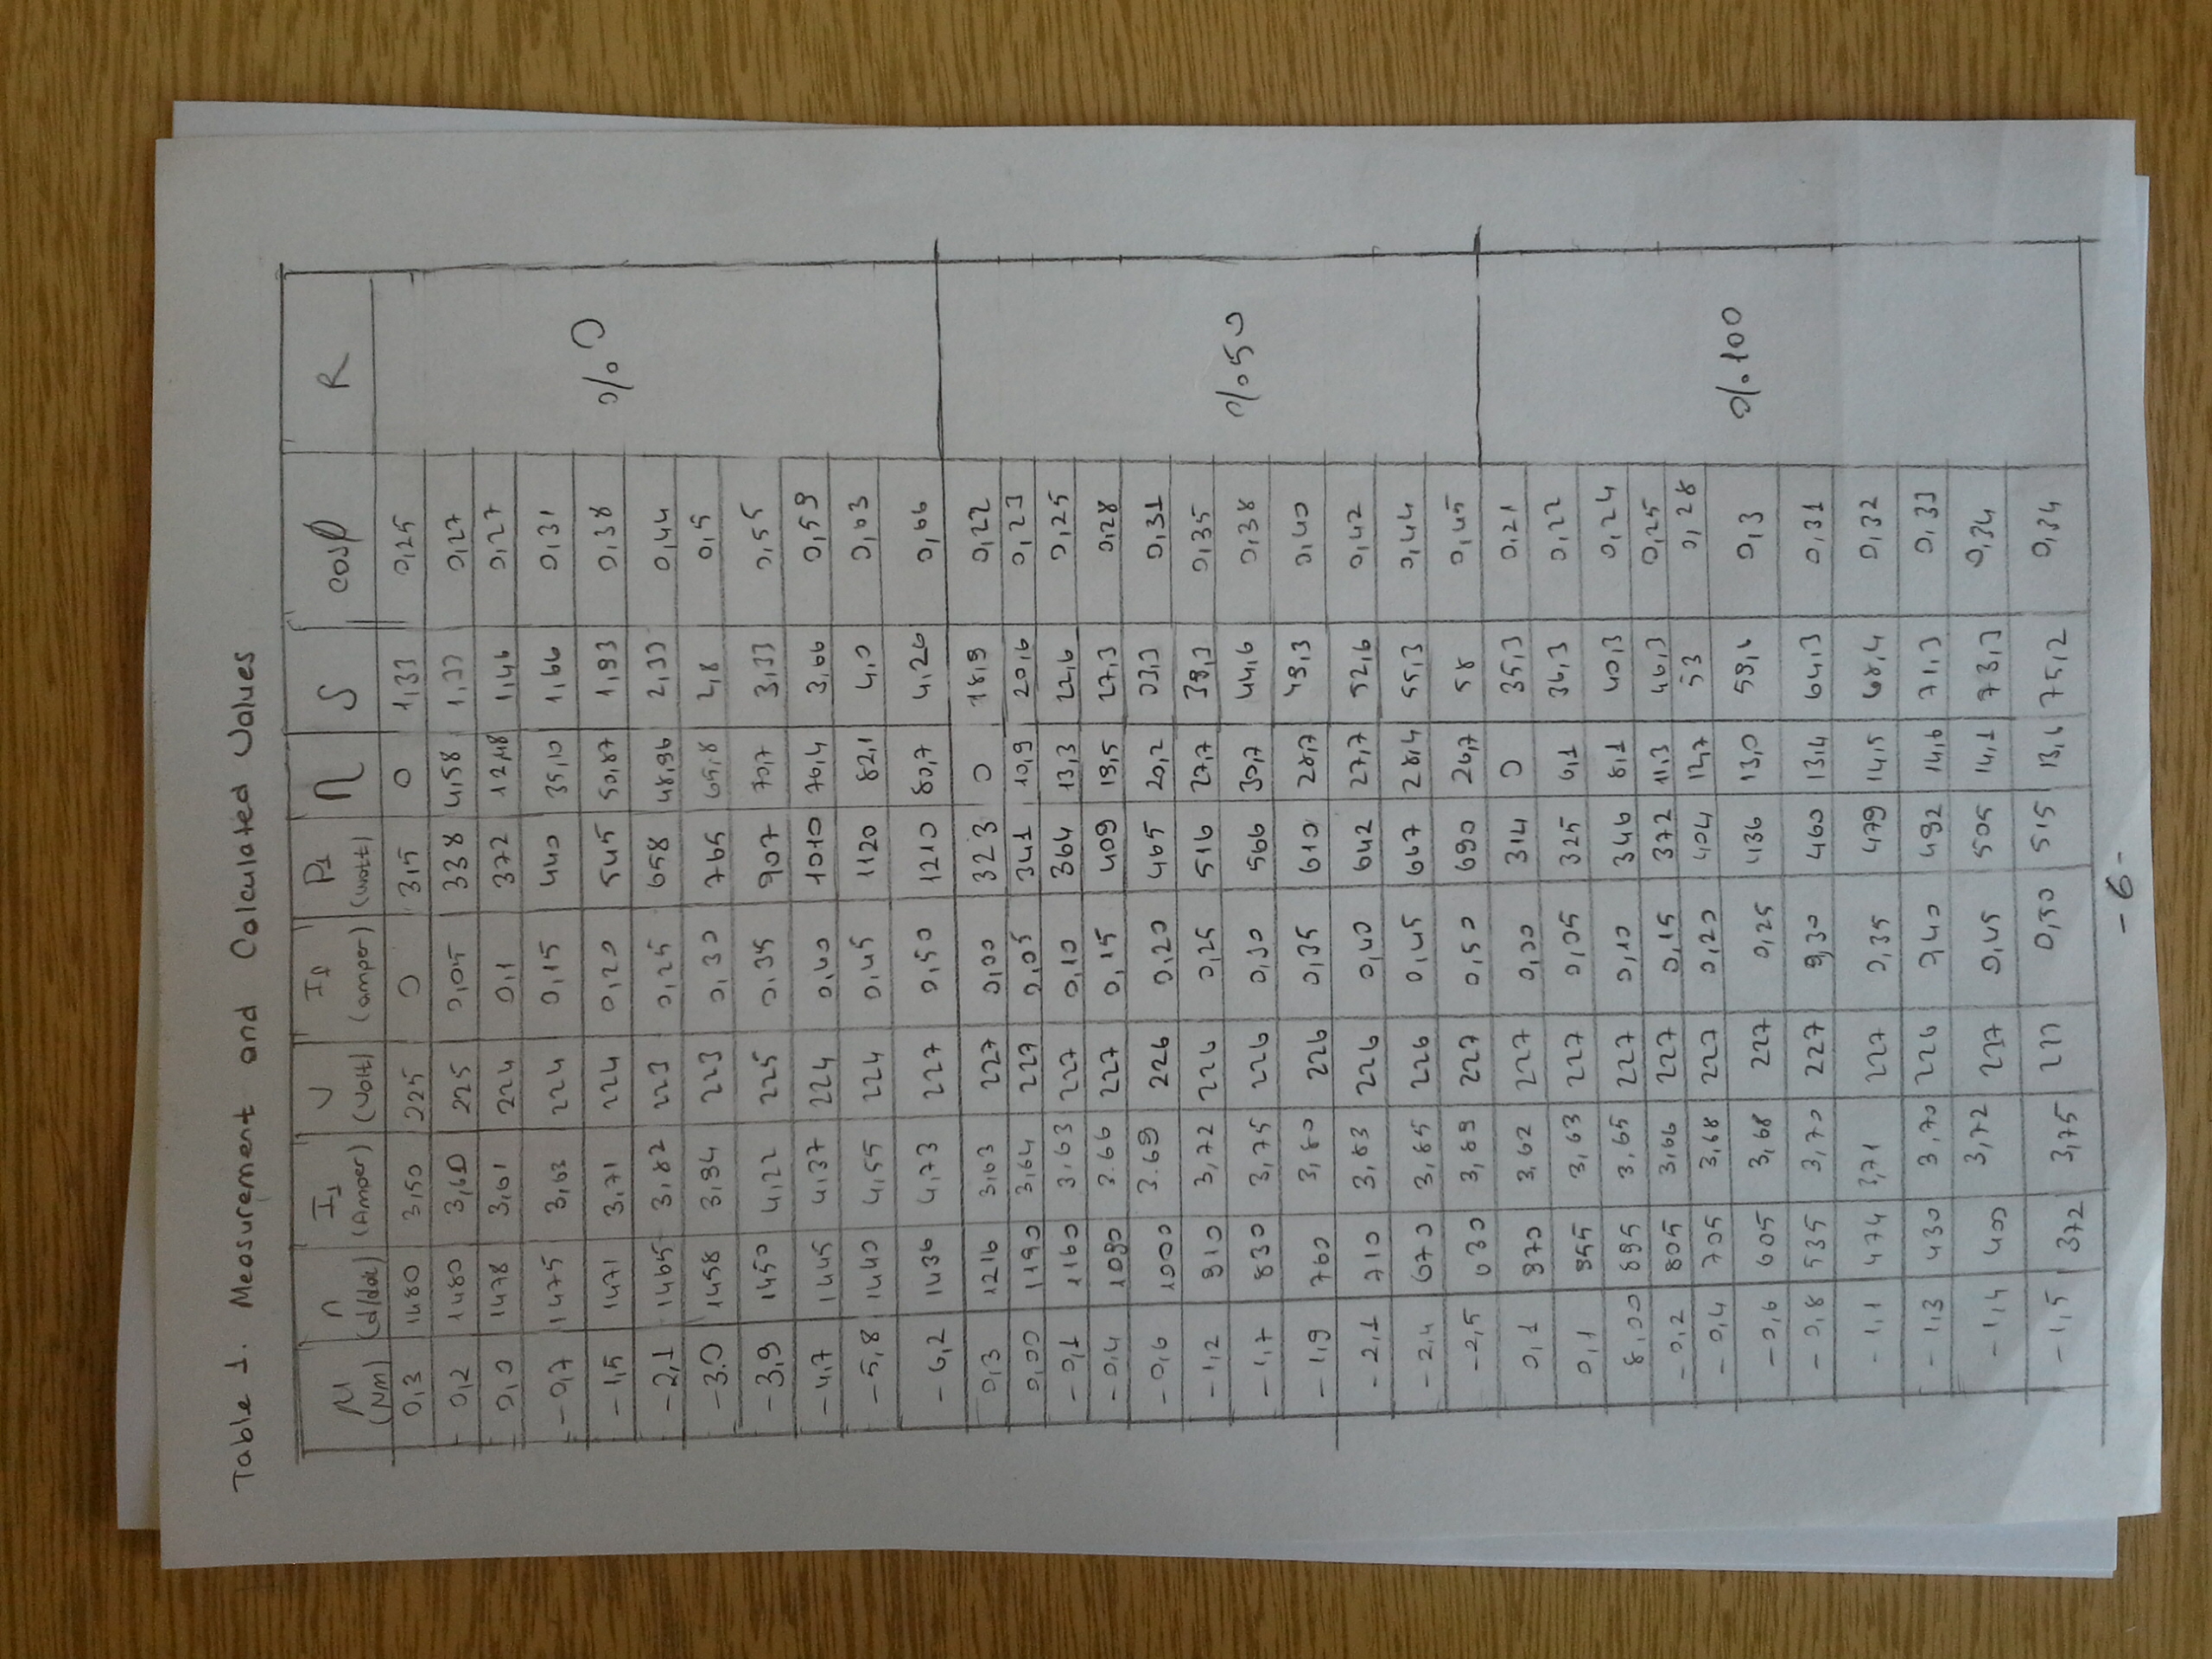 Table 1. Measurement and Calculated Values
M (Nm) n (d/dak) I₁ (Amper) U (Volt) I₂ (amper) P₁ (watt) η S cosφ R
0,3 1480 3,50 225 0 315 0 1,33 0,25 %0
0,2 1480 3,60 225 0,05 338 4,58 1,33 0,27
0,0 1478 3,61 224 0,1 372 12,48 1,46 0,27
-0,7 1475 3,63 224 0,15 440 35,10 1,66 0,31
-1,5 1471 3,71 224 0,20 545 50,87 1,93 0,38
-2,1 1465 3,82 223 0,25 658 48,96 2,33 0,44
-3.0 1458 3,94 223 0,30 765 65,8 2,8 0,5
-3,9 1450 4,22 225 0,35 907 70,7 3,33 0,55
-4,7 1445 4,37 224 0,40 1010 76,4 3,66 0,59
-5,8 1440 4,55 224 0,45 1120 82,1 4,0 0,63
-6,2 1436 4,73 227 0,50 1210 80,7 4,26 0,66
0,3 1216 3,63 227 0,00 323 0 18,9 0,22 %50
0,00 1190 3,64 227 0,05 341 10,9 20,6 0,23
-0,1 1160 3,63 227 0,10 364 13,3 22,6 0,25
-0,4 1090 3.66 227 0,15 409 19,5 27,3 0,28
-0,6 1000 3.69 226 0,20 465 20,2 33,3 0,31
-1,2 910 3,72 226 0,25 516 27,7 39,3 0,35
-1,7 830 3,75 226 0,30 566 30,7 44,6 0,38
-1,9 760 3,80 226 0,35 610 28,7 49,3 0,40
-2,1 710 3,83 226 0,40 642 27,7 52,6 0,42
-2,4 670 3,85 226 0,45 667 28,4 55,3 0,44
-2,5 630 3,89 227 0,50 690 26,7 58 0,45
0,1 970 3,62 227 0,00 314 0 35,3 0,21 %100
0,1 955 3,63 227 0,05 325 6,1 36,3 0,22
0,00 895 3,65 227 0,10 346 8,1 40,3 0,24
-0,2 805 3,66 227 0,15 372 11,3 46,3 0,25
-0,4 705 3,68 227 0,20 404 12,7 53 0,28
-0,6 605 3,68 227 0,25 436 13,0 59,6 0,3
-0,8 535 3,70 227 0,30 460 13,4 64,3 0,31
-1,1 474 3,71 227 0,35 479 14,5 68,4 0,32
-1,3 430 3,70 226 0,40 492 14,6 71,3 0,33
-1,4 400 3,72 227 0,45 505 14,1 73,3 0,34
-1,5 372 3,75 227 0,50 515 13,6 75,2 0,34
-6-